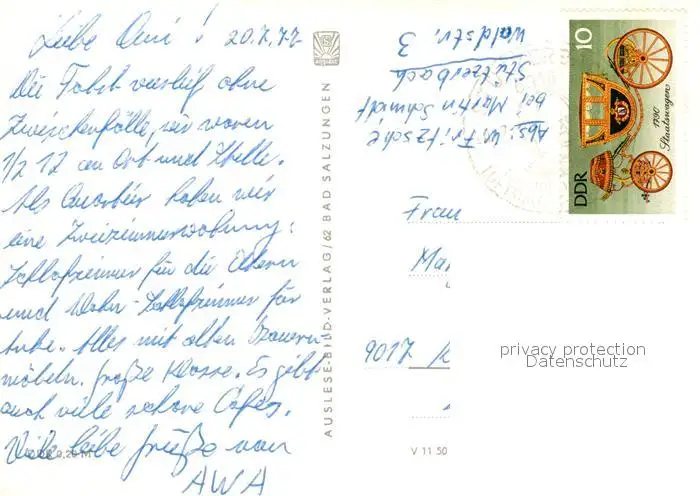 Liebe Omi! 20.7.77
Die Fahrt verlief ohne
Zwischenfälle, wir waren
1/2 12 an Ort und Stelle.
Als Quartier haben wir
eine Zweizimmerwohnung:
Schlafzimmer für die Eltern
und Wohn-Schlafzimmer für
Anke. Alles mit alten Bauern-
möbeln. Große Klasse. Es gibt
auch viele schöne Cafes.
Viele liebe Grüße von
AWA
0,20 M
AUSLESE-BILD-VERLAG/62 BAD SALZUNGEN
Abs: W. Fritzsche
bei Martin Schmidt
Stützerbach
Waldstr. 3
10
1790
Staatswagen
DDR
Frau
Mar
9017 K
privacy protection
Datenschutz
V 11 50